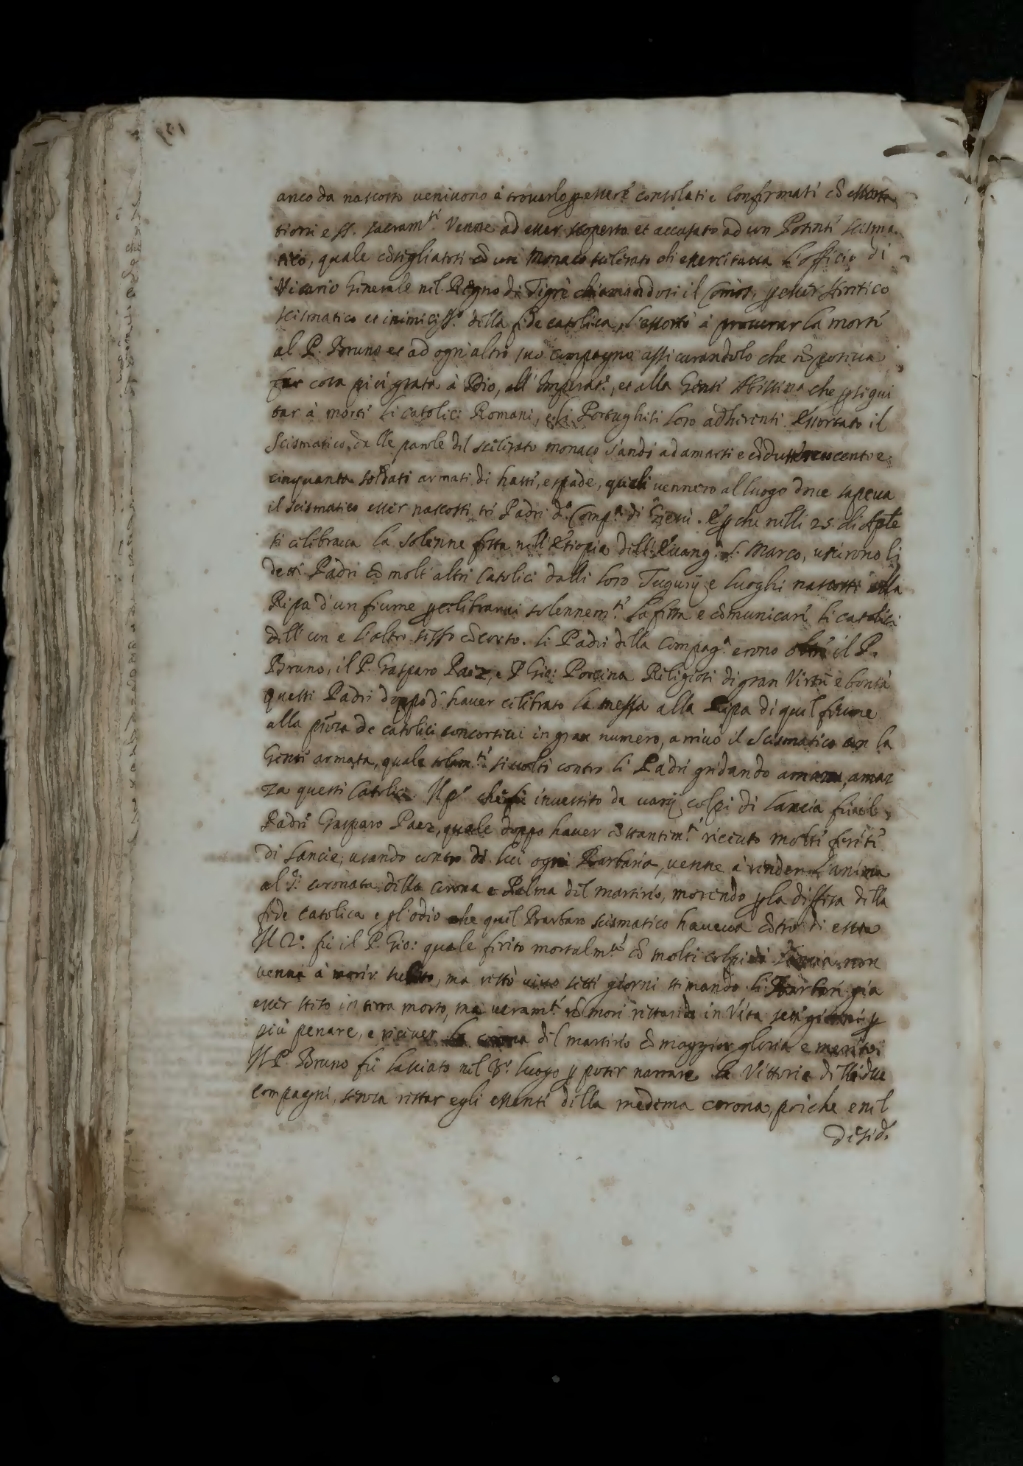 anco da nascosto venivono à trovarlo p esser consolati e confirmati cõ essorta
tioni e SS. sacram.ti Venne ad esser scoperto et accusato ad un Potenti scisma
tico, quale cõsigliatosi cõ un Monaco scilerato chi exercitava l'officio di
Vicario Generale nel Regno di Tigrè chiamandosi il p esser hiritico
scismatico et inimiciss.o della fide catolica, l'essortò à procurar la morti
al P. Bruno et ad ogn'altro suo compagno assicurandolo che nõ potiva
far cosa piu grata à Dio, all' Imperat.e, et alla Genti Abissina che psigui
tar à morti li catolici Romani, e li Portughisi loro adhirenti. Essortato il
Scismatico, da lle parole del scilirato monaco s'andò ad armarsi e cõdussi ducento e
cinquanta soldati armati di hasti, e spade, quali vennero al luogo dove sapeva
il scismatico esser nascosti tri Padri d.a Comp.a di Giesù. E p che nilli 25. di Aple
si cilibrava la solenne festa nill' Etiopia dill' Evang.a S. Marco, uscirono li
detti Padri cõ molt altri Catolici dalli loro Tugurij e luoghi nascosti alla
Ripa d'un fiume p cilibrarvi solennem.ti la festa e cõmunicari li catolici
dill' un e l'altro sesso. Li Padri dilla Compag.a erono oltri il P.
Bruno, il P. Gasparo Paez, e P. Gio: Porcina Riligiosi di gran Virtù e bontà
questi Padri doppo d' haver cilibrato la messa alla Ripa di quel fiume
alla p̃nza de catolici concorsivi in gran numero, arrivò il Scismatico con la
Genti armata, quale si voltò contro li Padri gridando amaza, amaz
za questi Catolici. Il p.o che fù investito da varij colpi di lancia fù il
Padri Gasparo Paez, quale doppo haver cõstantim.ti riciuto molti feriti
di Lancie, usando contro di lui ogni Barbaria, venne à render l'anima
al S.r coronata dilla corona e Palma dil martirio, morendo p la diffesa dilla
fide catolica e p l'odio che quel Barbaro scismatico haveva cõtro di essa
Il 2.o fù il P. Gio: quale firito mortalm.ti cõ molti colpi di Lancia, non
venne à morir subito, ma vissò vivo sitti giorni stimando li Barbari già
esser stito in tirra morto, ma veram.ti nõ morì ristando in Vita p
più penare, e riciver la corona dil martirio cõ maggior gloria e merito:
Il P. Bruno fù lasciato nel 3.o luogo p poter narrare la Vittoria dilli due
compagni, senza ristar egli essenti dilla medema corona, poiche enil
disid.